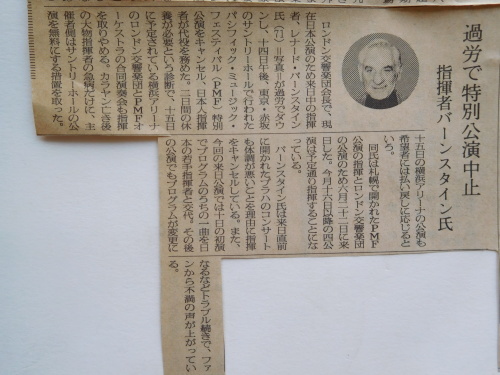 過労で特別公演中止
指揮者バーンスタイン氏
ロンドン交響楽団会長で、現
在日本公演のため来日中の指揮
者、レナード・バーンスタイン
氏(71)=写真=が過労でダウ
ンし、十四日午後、東京・赤坂
のサントリーホールで行われた
パシフィック・ミュージック・
フェスティバル(PMF)特別
公演をキャンセル、日本人指揮
者が代役を務めた。二日間の休
養が必要という診断で、十五日
に予定されている横浜アリーナ
のロンドン交響楽団とPMFオ
ーケストラの合同演奏会も指揮
を取りやめる。カラヤン亡き後
の大物指揮者の急病だけに、主
催者側はサントリーホールの公
演を無料にする措置を取った。
十五日の横浜アリーナの公演も
希望者には払い戻しに応じると
いう。
同氏は札幌で開かれたPMF
公演の指揮とロンドン交響楽団
の公演のため六月二十二日に来
日した。今月十六日以降の四公
演は予定通り指揮することにな
っている。
バーンスタイン氏は来日直前
に開かれたプラハのコンサート
も体調が悪いことを理由に指揮
をキャンセルしている。また、
今回の来日公演では十日の初演
でプログラムのうちの一曲を日
本の若手指揮者と交代。その後
の公演でもプログラムが変更に
なるなどトラブル続きで、ファ
ンから不満の声が上がってい
る。